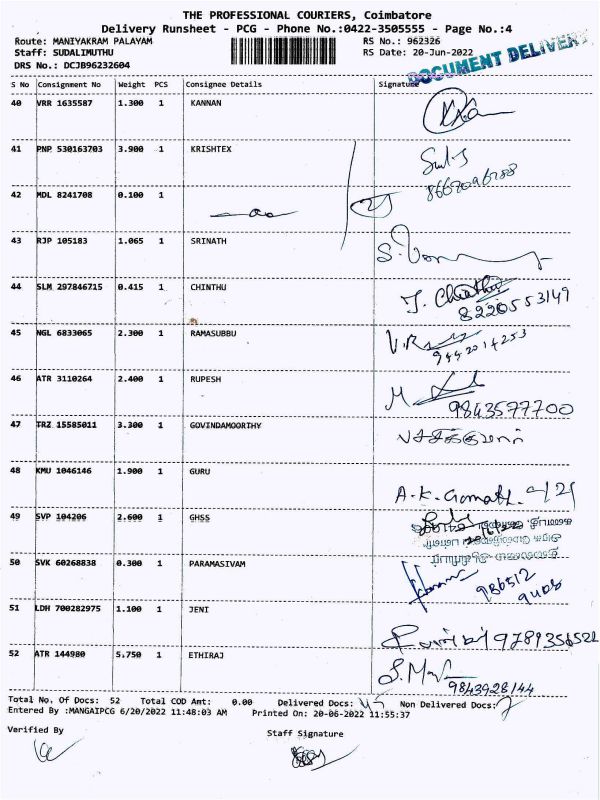 THE PROFESSIONAL COURIERS, Coimbatore
Delivery Runsheet - PCG - Phone No.:0422-3505555 - Page No.:4
Route: MANIYAKRAM PALAYAM RS No.: 962326
Staff: SUDALIMUTHU RS Date: 20-Jun-2022
DRS No.: DCJB96232604
DOCUMENT DELIVERY
S No Consignment No Weight PCS Consignee Details Signature
40 VRR 1635587 1.300 1 KANNAN
41 PNP 530163703 3.900 1 KRISHTEX
42 MDL 8241708 0.100 1
43 RJP 105183 1.065 1 SRINATH
44 SLM 297846715 0.415 1 CHINTHU
8220553149
45 NGL 6833065 2.300 1 RAMASUBBU
9442014253
46 ATR 3110264 2.400 1 RUPESH
9843577700
47 TRZ 15585011 3.300 1 GOVINDAMOORTHY
48 KMU 1046146 1.900 1 GURU
49 SVP 104206 2.600 1 GHSS
50 SVK 60268838 0.300 1 PARAMASIVAM
986512
9408
51 LDH 700282975 1.100 1 JENI
9789356522
52 ATR 144980 5.750 1 ETHIRAJ
9843928144
Total No. Of Docs: 52 Total COD Amt: 0.00 Delivered Docs: Non Delivered Docs:
Entered By :MANGAIPCG 6/20/2022 11:48:03 AM Printed On: 20-06-2022 11:55:37
Verified By Staff Signature